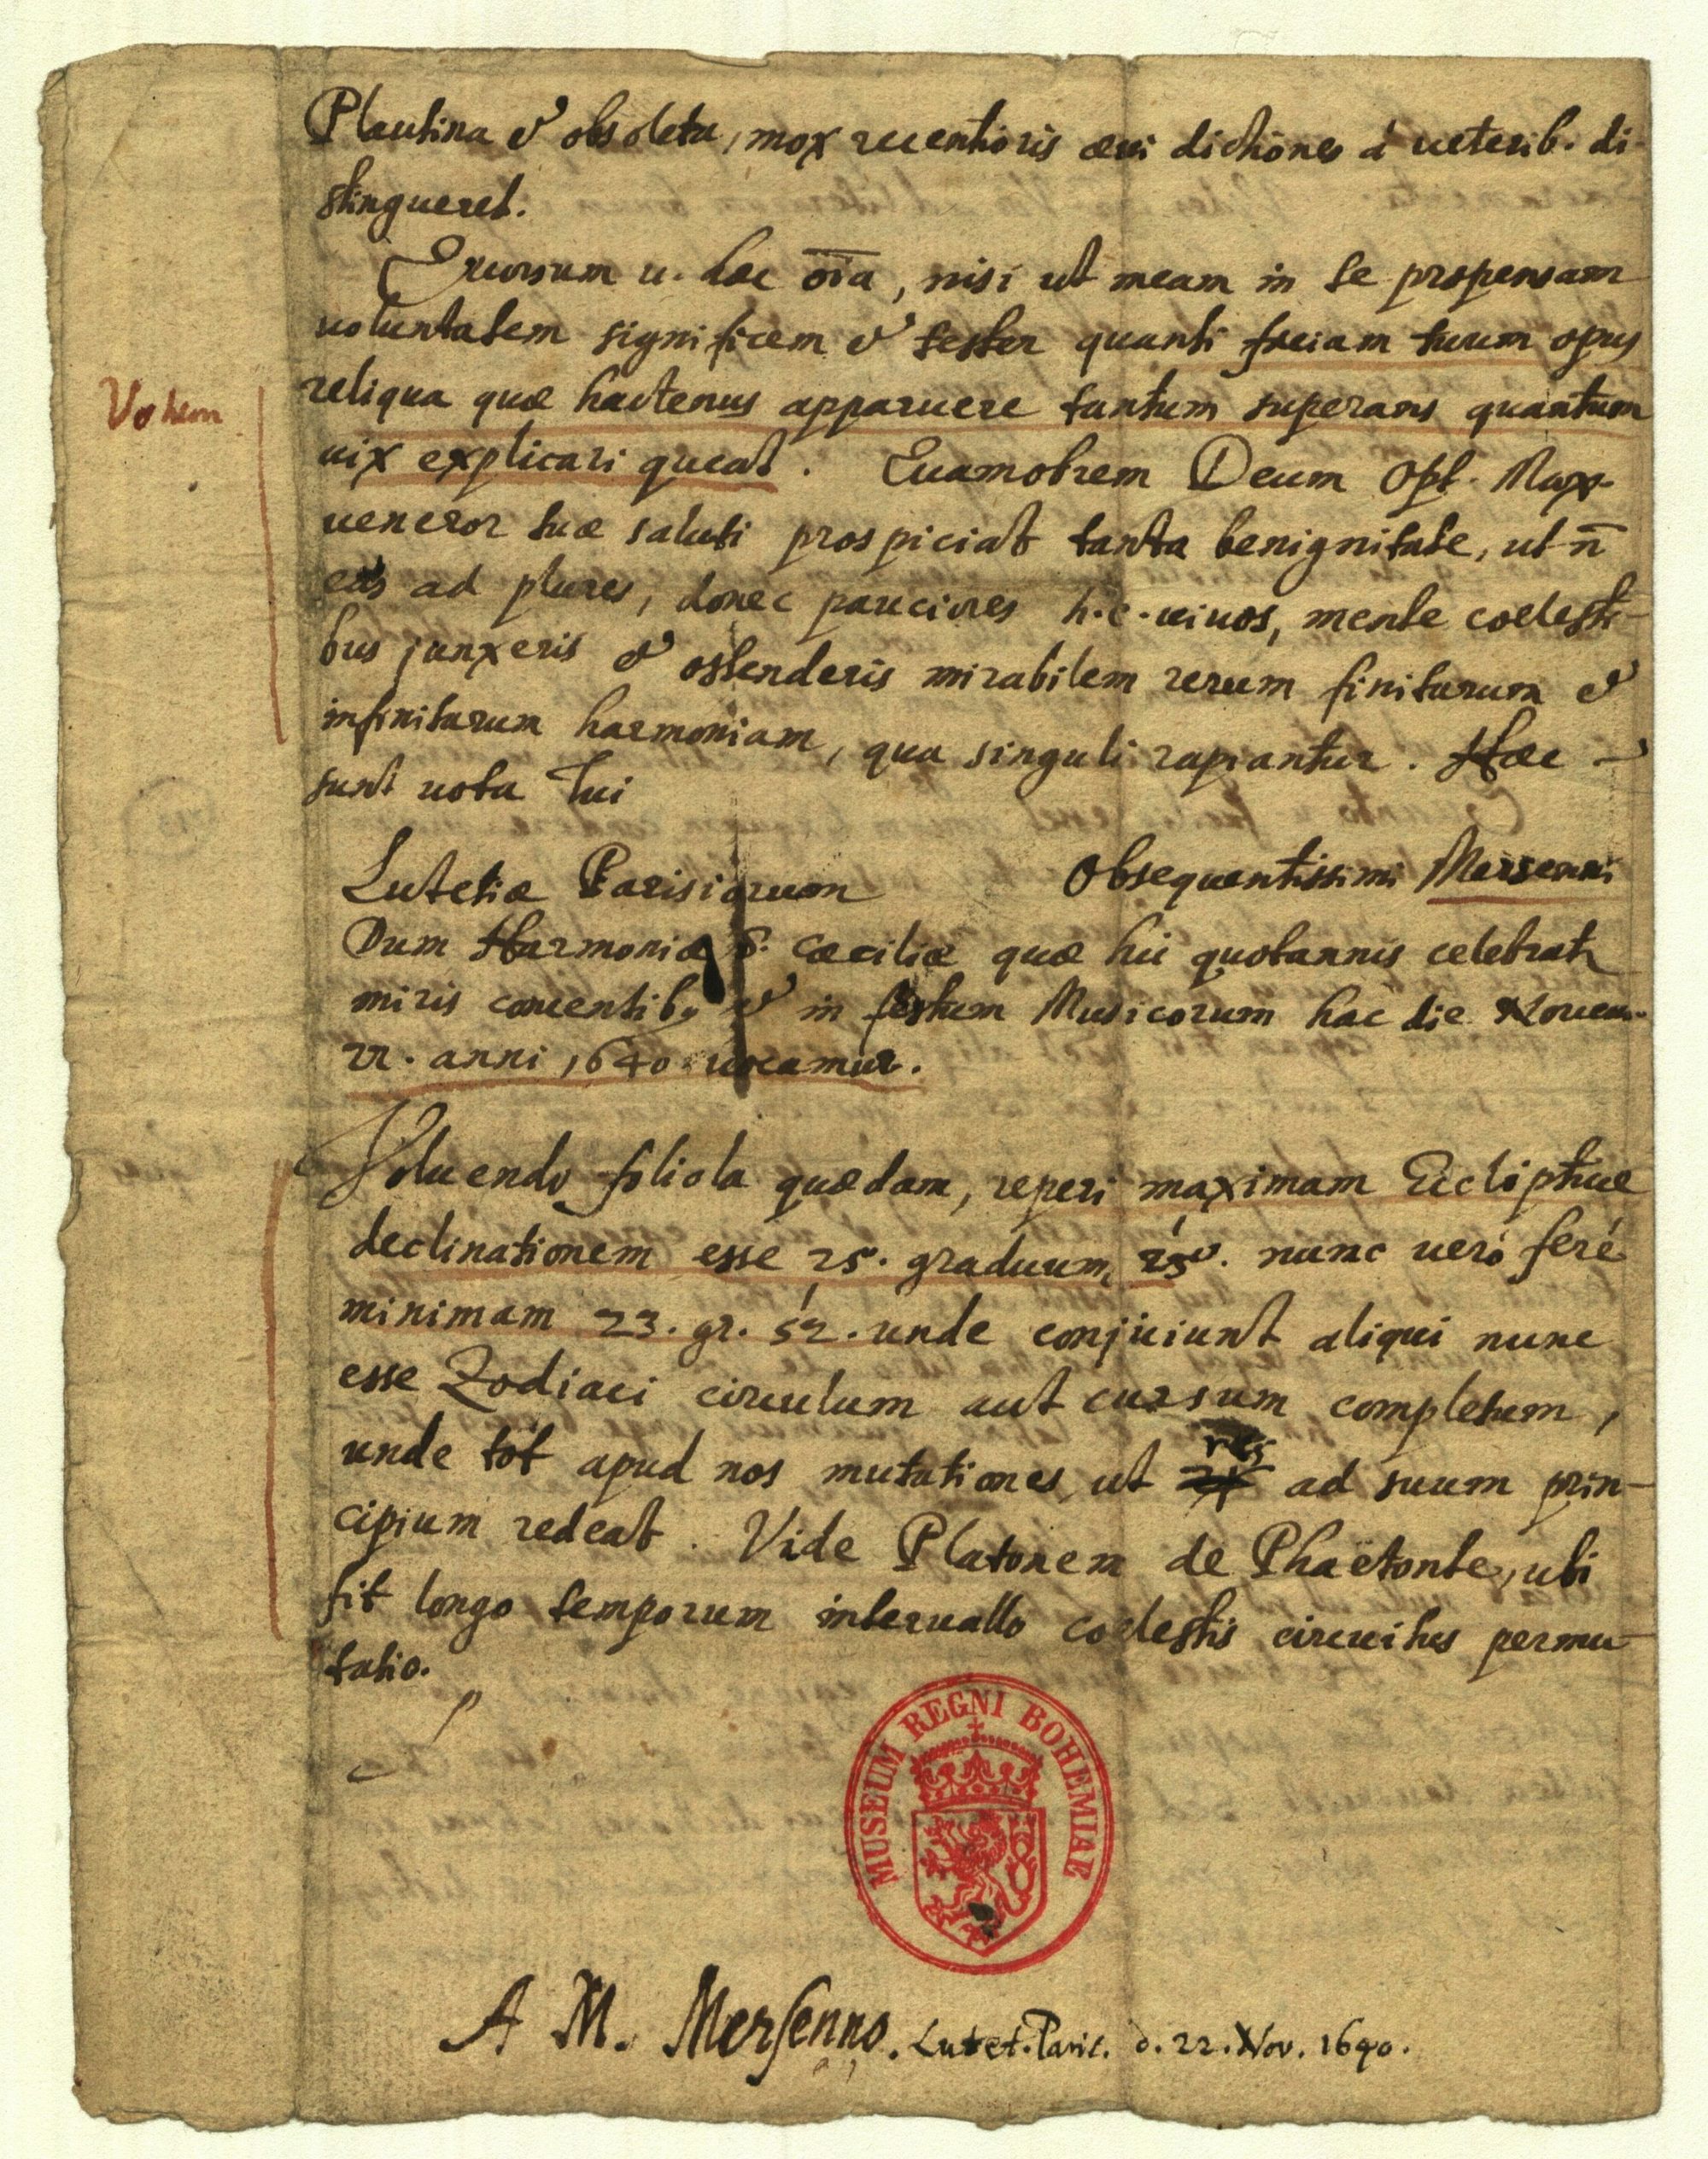 Plautina & obsoleta, mox recentioris ævi dictiones à veterib. di-
stingueret.
Quorsum u. hæc oīa, nisi ut meam in te propensam
voluntatem significem & tester quanti faciam tuum opus
reliqua quæ hactenus apparuere tantum superans quantum
vix explicari queat. Quamobrem Deum Opt. Max.
veneror tuæ saluti prospiciat tanta benignitate, ut n̄
eas ad plures, donec pauciores h.e. vivos, mente coelesti-
bus junxeris & ostenderis mirabilem rerum finitarum &
infinitarum harmoniam, qua singuli rapiantur. Hæc
sunt vota Tui
Lutetiæ Parisiorum Obsequentissimi Mersenni
Dum Harmoniæ S. Cæciliæ quæ hic quotannis celebratr
miris concentib9 & in festum Musicorum hac die Novem.
22. anni 1640 vocamur.
Voluendo foliola quædam, reperi maximam Eclipticæ
declinationem esse 25. graduum nunc verò ferè
minimam 23. gr. 52. unde conjiciunt aliqui nunc
esse Zodiaci circulum aut cursum completum,
unde tot apud nos mutationes, ut res ad suum prin-
cipium redeat. Vide Platonem de Phaëtonte, ubi
fit longo temporum intervallo coelestis circuitus permu-
tatio.
MUSEUM REGNI BOHEMIAE
A M. Mersenno. Lutet. Paris. d. 22. Nov. 1640.